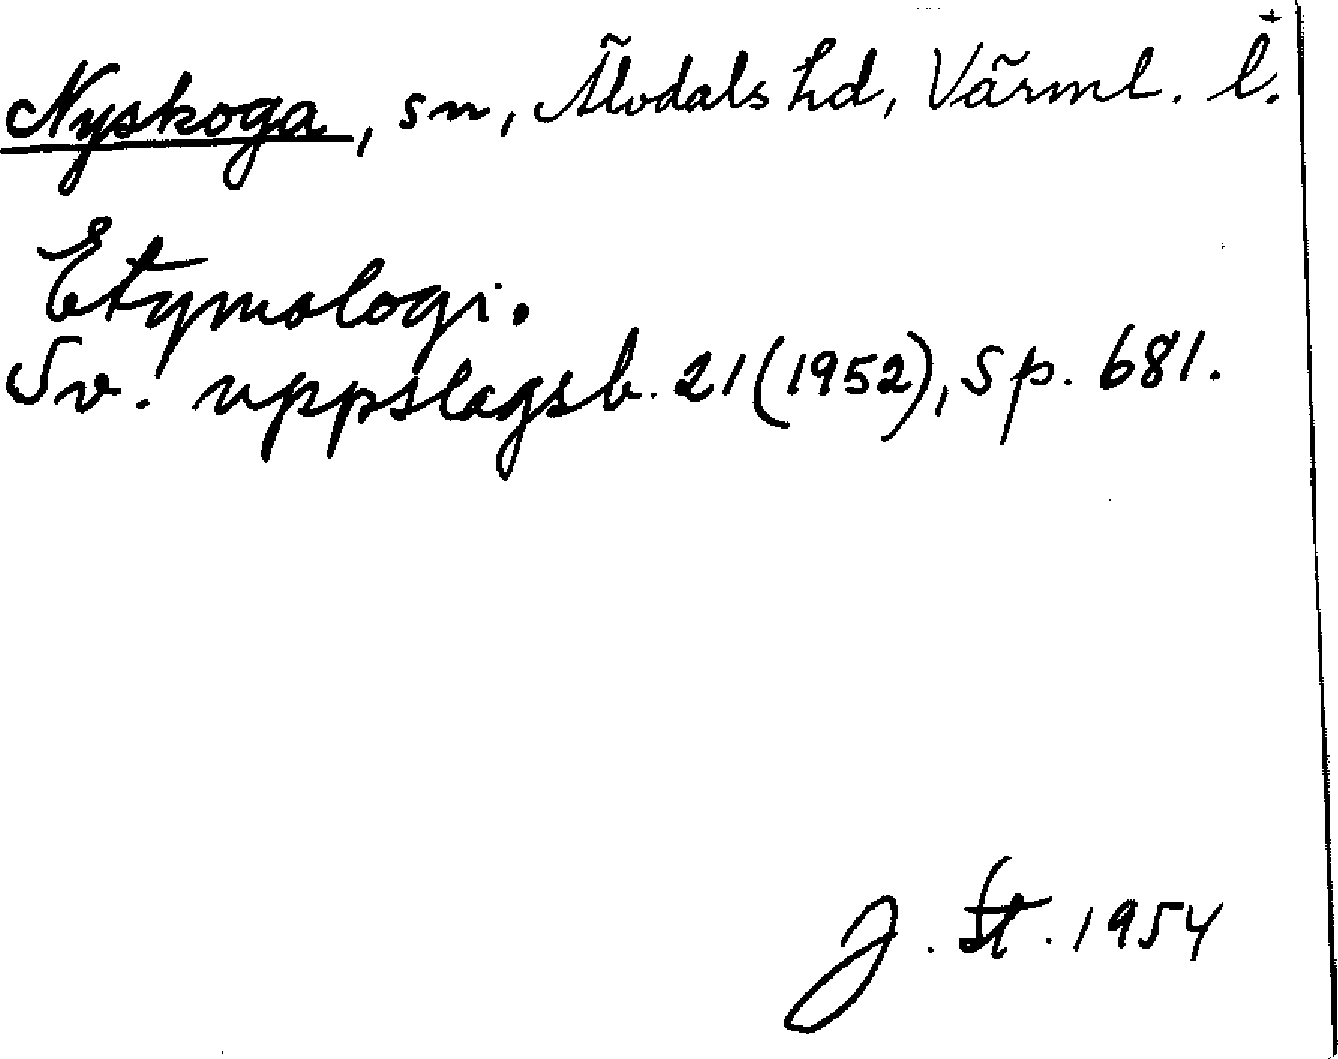 Nyskoga, sn, Älvdals hd, Värml. l.
Etymologi.
Sv. uppslagsb. 21 (1952), sp. 681.
J. St. 1954